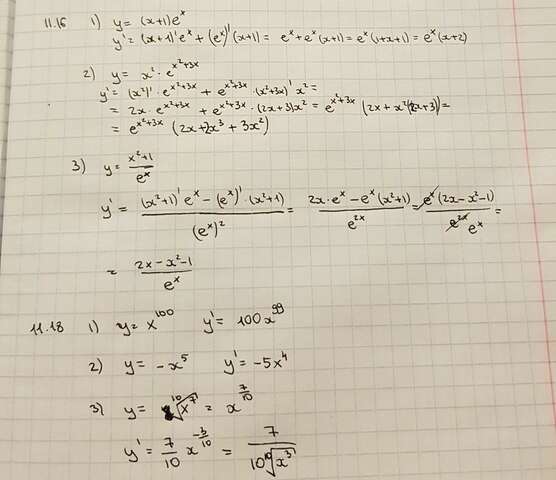 11.16 1) y = (x+1)e^x
y' = (x+1)' e^x + (e^x)' (x+1) = e^x + e^x (x+1) = e^x (1+x+1) = e^x (x+2)
2) y = x² · e^(x²+3x)
y' = (x²)' · e^(x²+3x) + e^(x²+3x) · (x²+3x)' x² =
= 2x · e^(x²+3x) + e^(x²+3x) · (2x+3)x² = e^(x²+3x) (2x + x²(2x+3)) =
= e^(x²+3x) (2x+2x³ + 3x²)
3) y = (x²+1)/e^x
y' = ((x²+1)' e^x − (e^x)' · (x²+1))/(e^x)² = (2x · e^x − e^x (x²+1))/e^(2x) = e^x (2x − x² − 1)/e^(2x) e^x =
= (2x − x² − 1)/e^x
11.18 1) y = x^100 y' = 100x^99
2) y = −x^5 y' = −5x^4
3) y = ¹⁰√(x^7) = x^(7/10)
y' = 7/10 x^(−3/10) = 7/(10 ¹⁰√(x³))